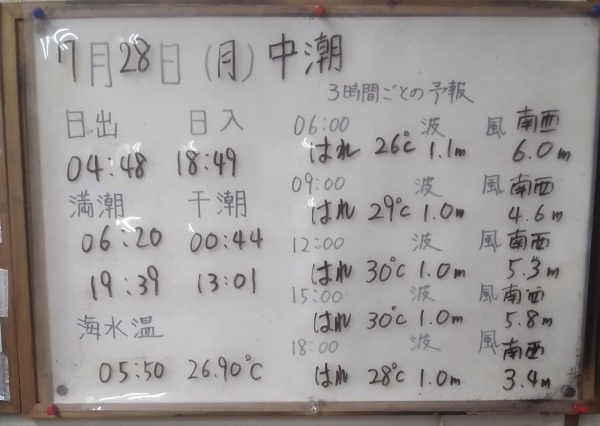 7月28日(月)中潮
日出 日入
04:48 18:49
満潮 干潮
06:20 00:44
19:39 13:01
海水温
05:50 26.90℃
3時間ごとの予報
06:00 波 風 南西
はれ 26℃ 1.1m 6.0m
09:00 波 風 南西
はれ 29℃ 1.0m 4.6m
12:00 波 風 南西
はれ 30℃ 1.0m 5.3m
15:00 波 風 南西
はれ 30℃ 1.0m 5.8m
18:00 波 風 南西
はれ 28℃ 1.0m 3.4m